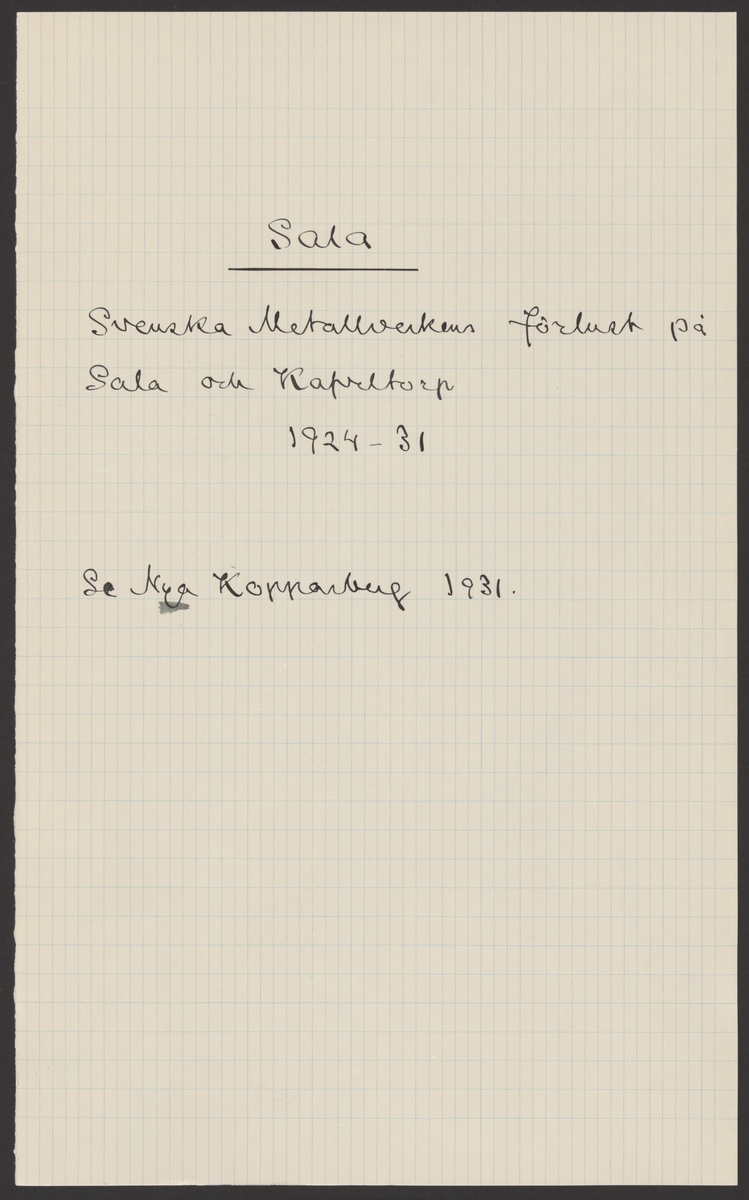 Sala
Svenska Metallverkens förlust på
Sala och Kaveltorp
1924-31
Se Nya Kopparberg 1931.